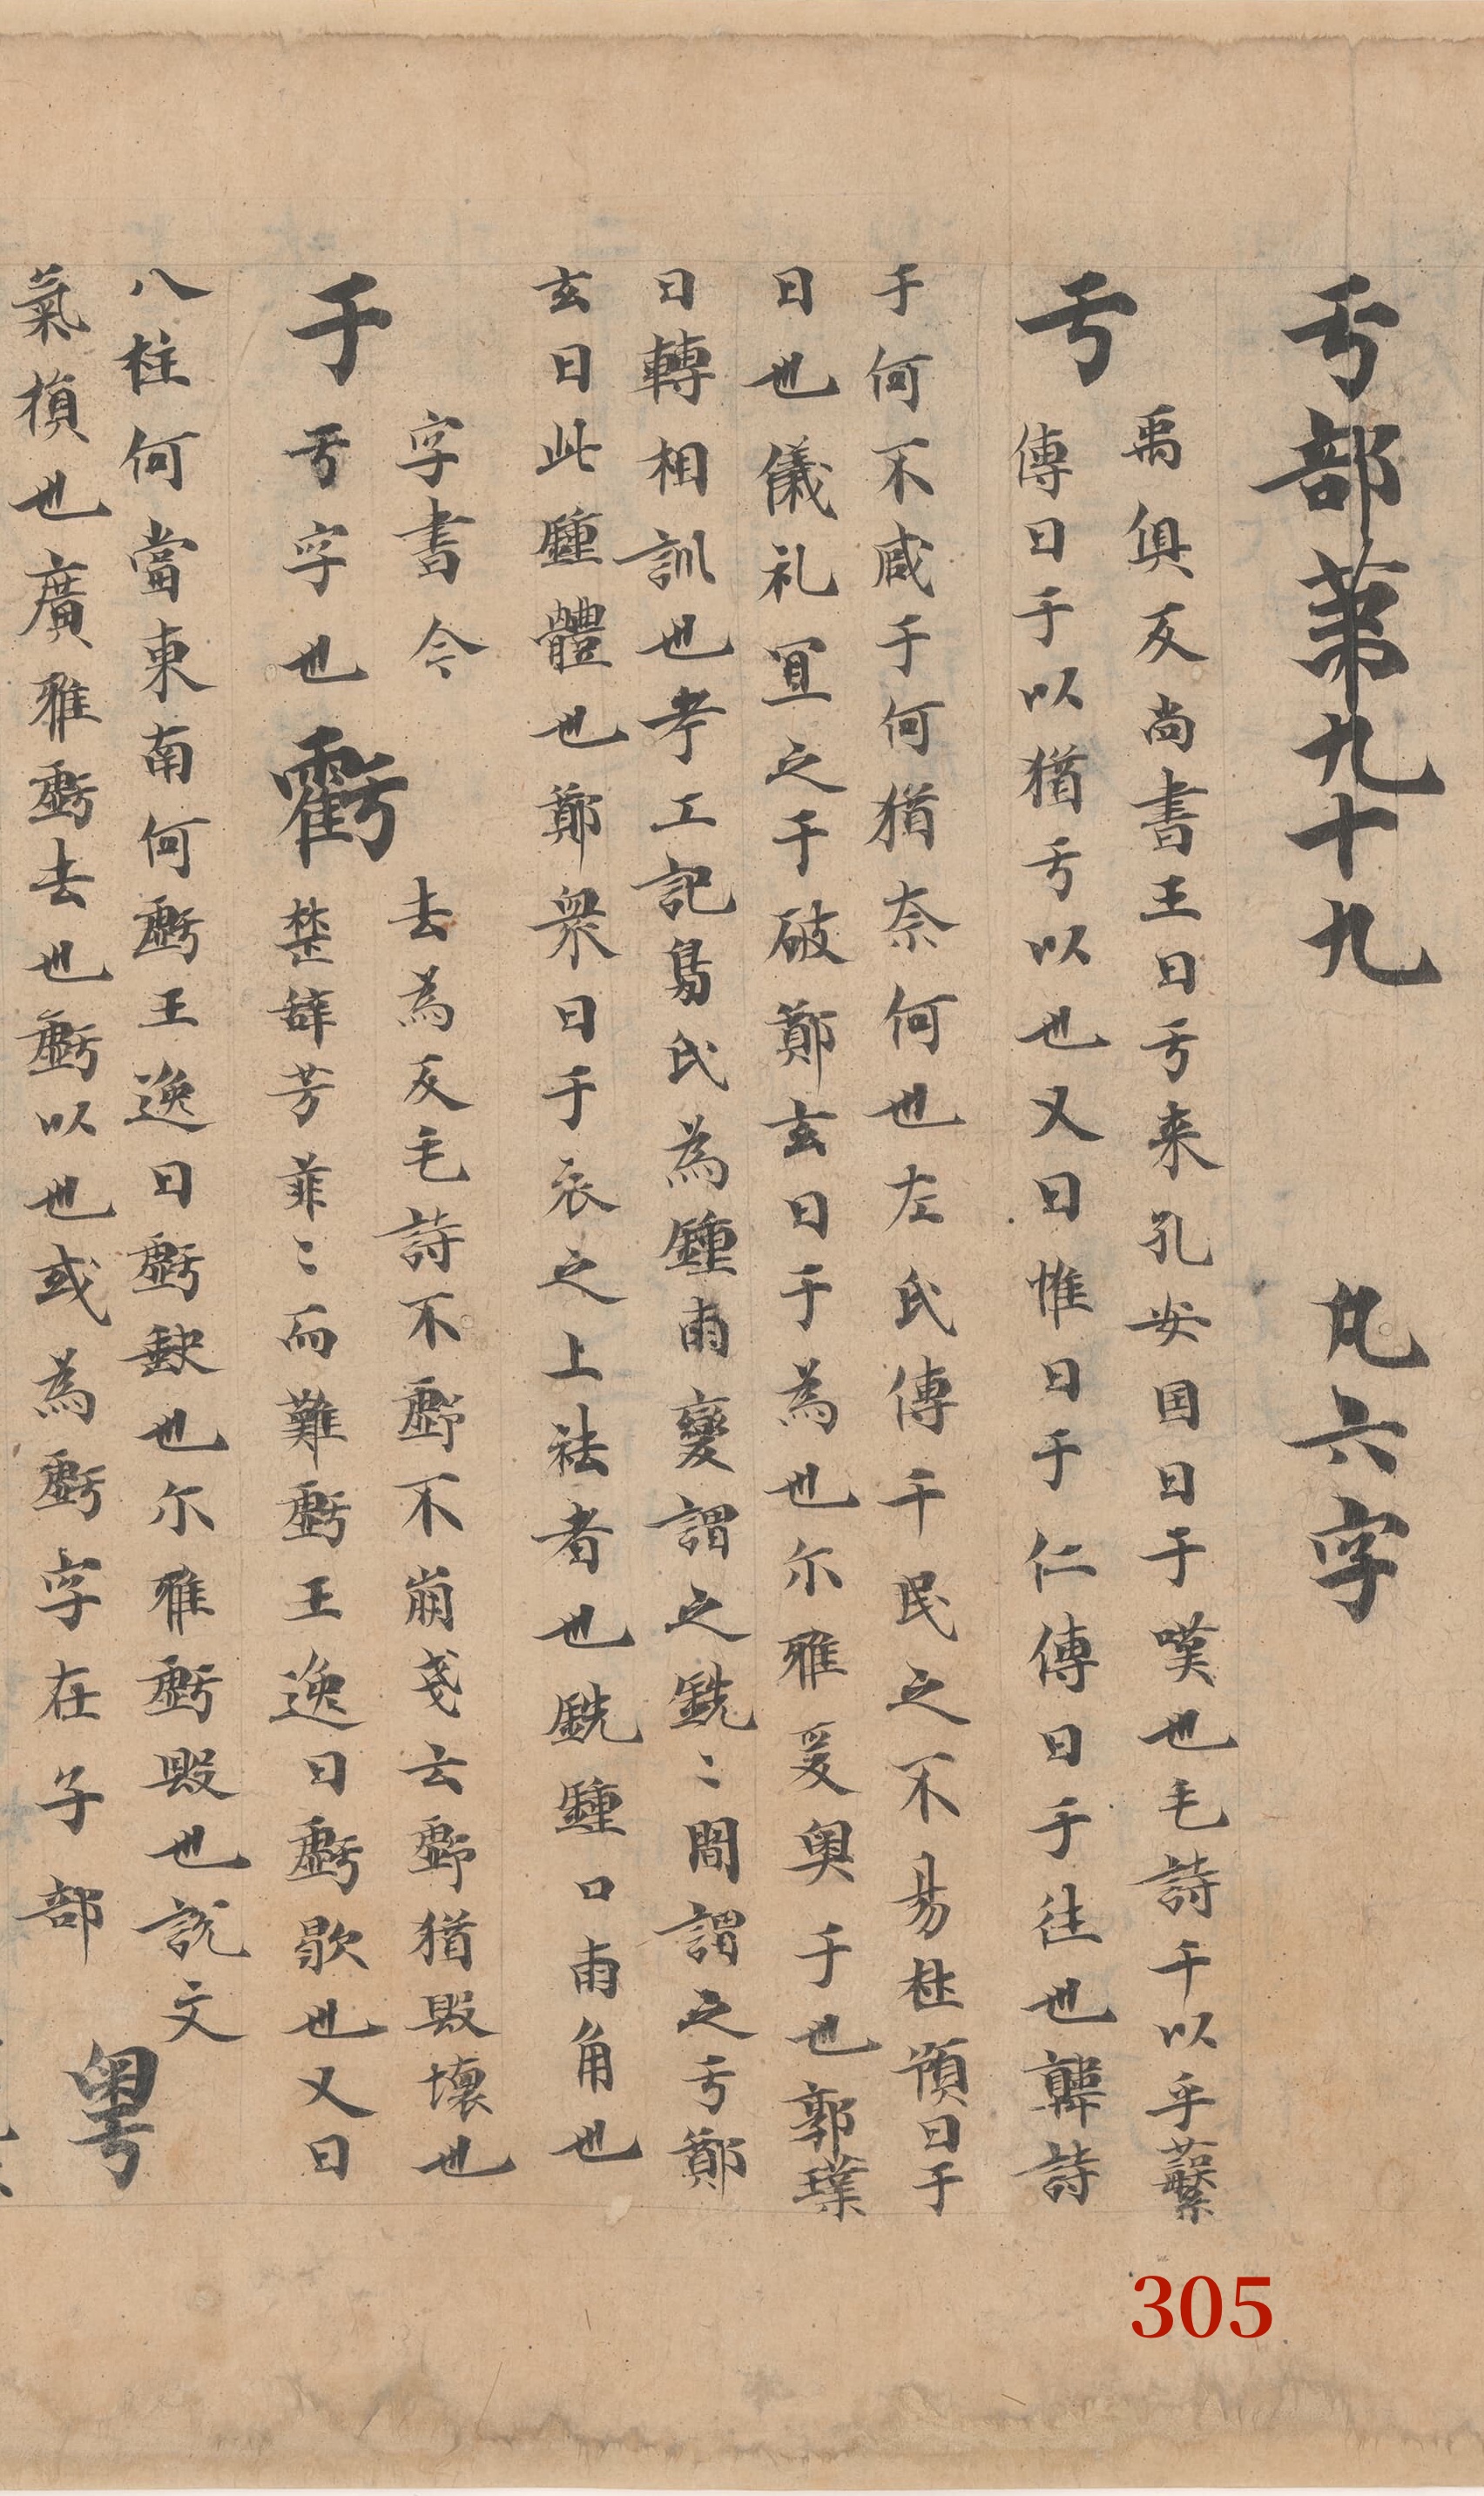 亏部第九十九 凡六字
亏 禹俱反尚書王曰亏来孔安国曰于嘆也毛詩干以乎蘩
傳曰于以猶亏以也又曰惟曰于仁傳曰于往也韓詩
于何不臧于何猶奈何也左氏傳干民之不易杜預曰于
曰也儀礼冝之于破鄭玄曰于為也尔雅爰奥于也郭璞
曰轉相訓也考工記鳧氏為鍾兩欒謂之銑〻間謂之亏鄭
玄曰此鍾體也鄭衆曰于衣之上袪者也銑鍾口兩角也
于 字書今
亐字也
虧 去為反毛詩不虧不崩戔云虧猶毀壞也
楚辞芳菲〻而難虧王逸曰虧歇也又曰
八柱何當東南何虧王逸曰虧缺也尔雅虧毀也說文
氣損也廣雅虧去也虧以也或為虧字在子部 粤
305